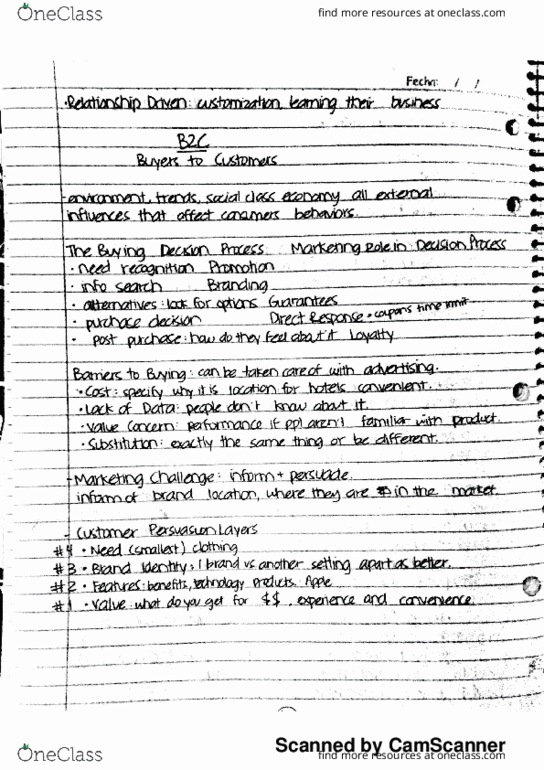 OneClass
find more resources at oneclass.com
Fecha: / /
·Relationship Driven: customization, learning their business
B2C
Buyers to Customers
-environment, trends, social class economy all external
influences that affect consumers behaviors.
The Buying Decision Process Marketing Role in Decision Process
· need recognition Promotion
· info search Branding
· alternatives: look for options Guarantees
· purchase decision Direct Response • coupons time limit
· post purchase: how do they feel about it Loyalty
Barriers to Buying: can be taken care of with advertising.
· Cost: specify why it is location for hotels convenient.
· Lack of Data: people don't know about it.
· Value Concern: performance if ppl aren't familiar with product.
· Substitution: exactly the same thing or be different.
-Marketing Challenge: inform + persuade.
inform of brand location, where they are in the market.
- Customer Persuasion Layers
#4 · Need (smallest) clothing
#3 · Brand Identity: 1 brand vs another setting apart as better.
#2 · Features: benefits, technology products. Apple
#1 · Value: what do you get for $$. experience and convenience.
Scanned by CamScanner
OneClass
find more resources at oneclass.com